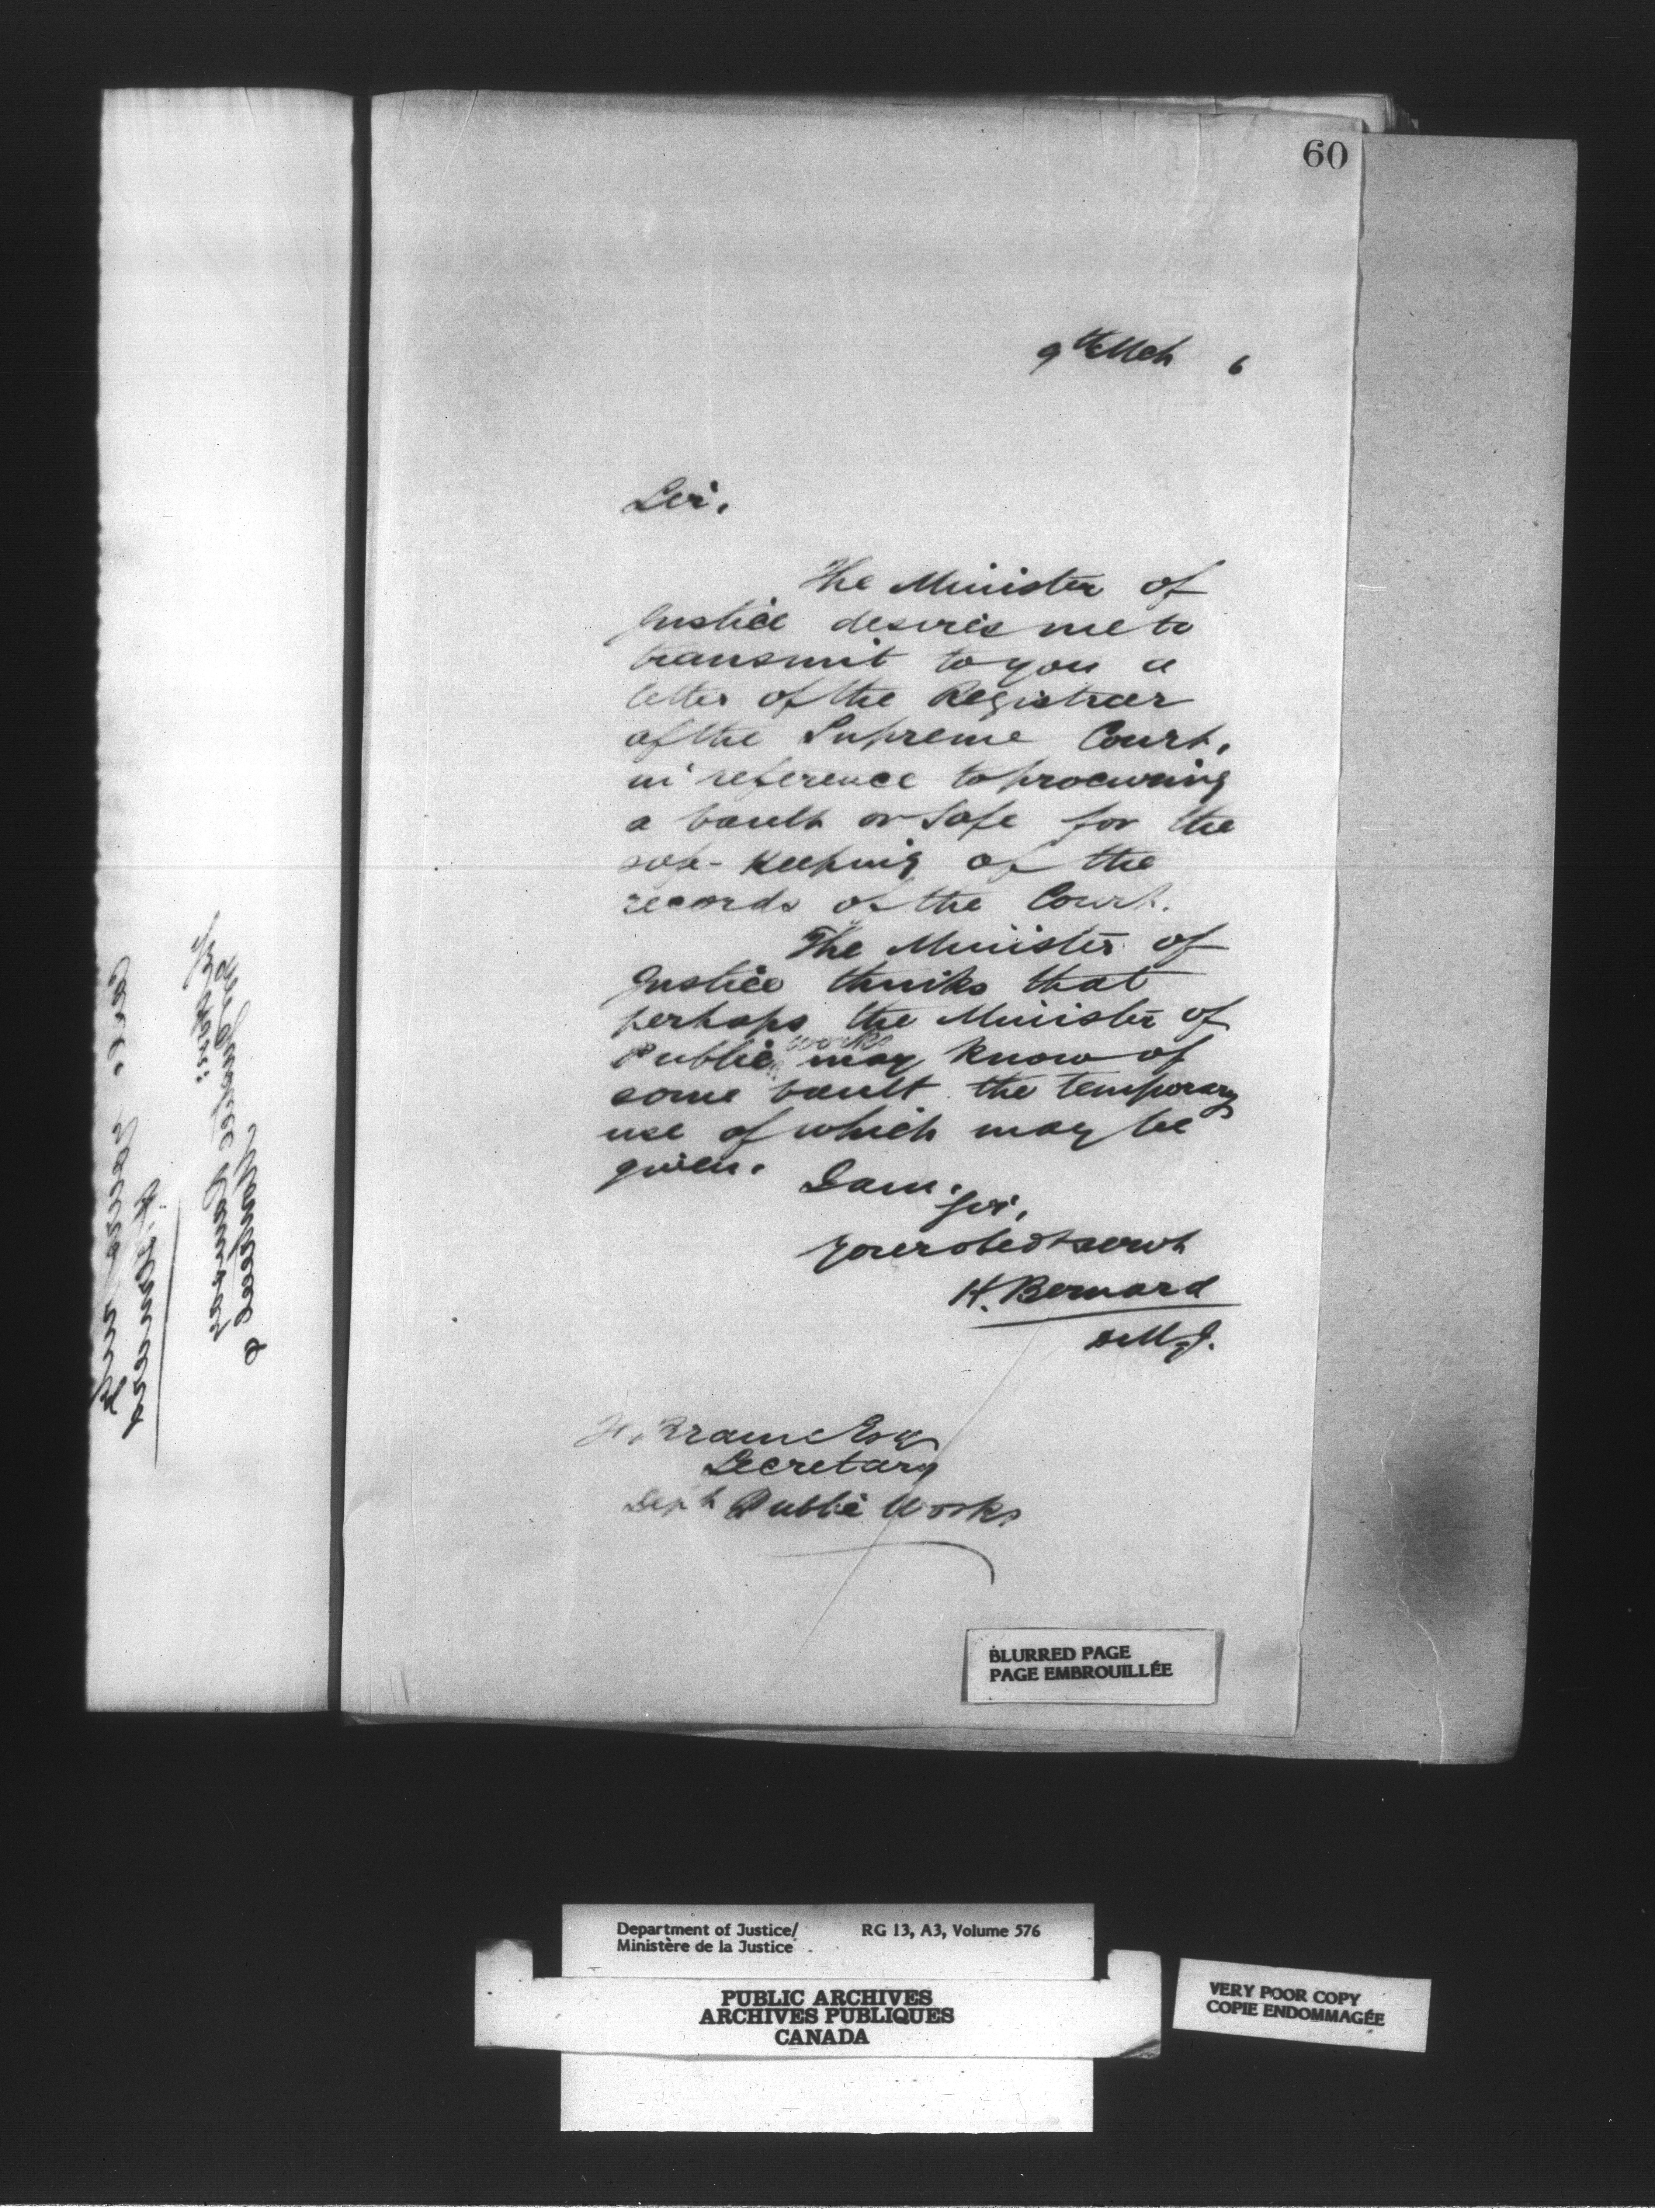 60
9th Mch 6
Sir,
The Minister of
Justice desires me to
transmit to you a
letter of the Registrar
of the Supreme Court,
in reference to procuring
a vault or safe for the
safe-keeping of the
records of the Court.
The Minister of
Justice thinks that
perhaps the Minister of
works
Public may know of
some vault the temporary
use of which may be
given.
I am,
Sir,
Your obedt servt
H. Bernard
D.M.J.
F. Braun Esq
Secretary
Dept Public Works
BLURRED PAGE
PAGE EMBROUILLÉE
Department of Justice/ RG 13, A3, Volume 576
Ministère de la Justice
PUBLIC ARCHIVES
ARCHIVES PUBLIQUES
CANADA
VERY POOR COPY
COPIE ENDOMMAGÉE